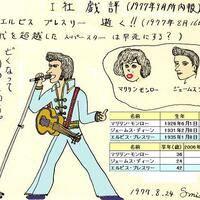 I社 戯評 (1977年9月所内報)
エルビス プレスリー 逝く!! (1977年8月16
代を超越した スーパースターは早死にする?)
亡くなって
マリリン モンロー
ジェームス・ディーン
名前 生年
マリリン・モンロー 1926年6月1日
ジェームス・ディーン 1931年2月8日
エルビス・プレスリー 1935年1月8日
名前 享年(歳) 2006年
マリリン・モンロー 36
ジェームス・ディーン 24
エルビス・プレスリー 42
1977.8.24 Smi